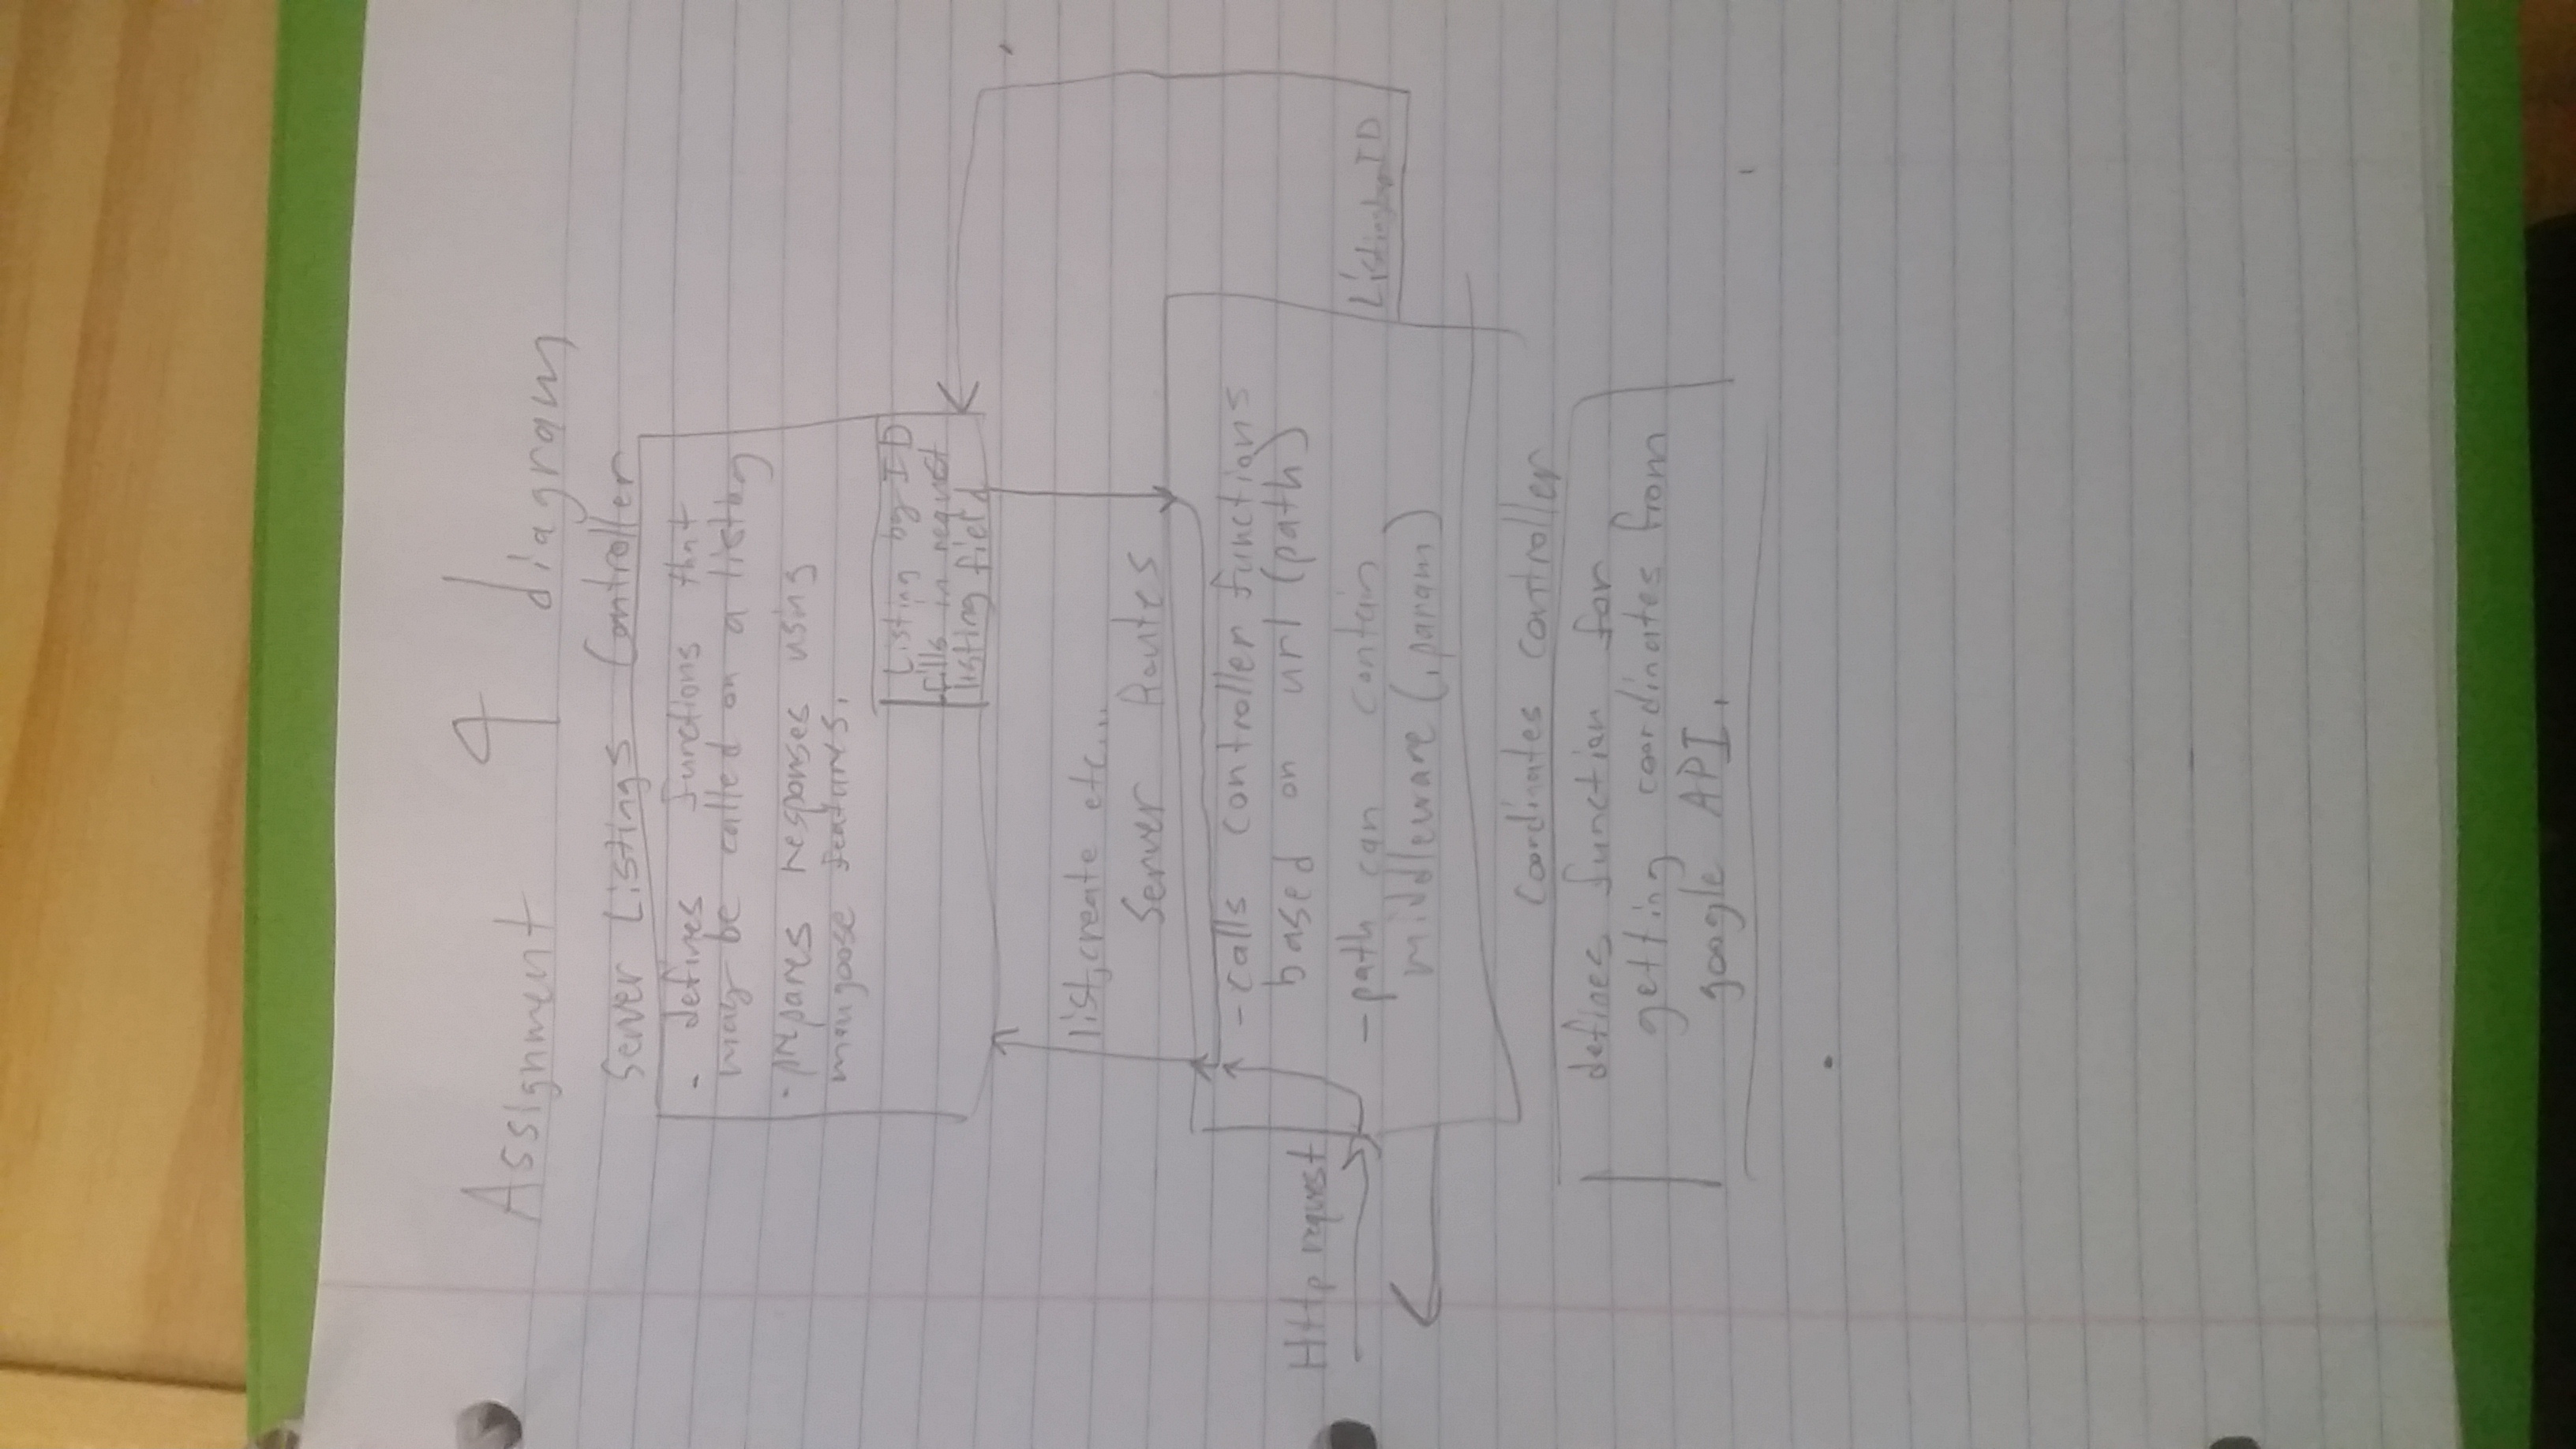 Assignment 4 diagram
Server Listings Controller
- defines functions that
may be called on a listing
- prepares responses using
mongoose features.
Listing by ID
fills in request
listing field
list, create etc...
Server Routes
- calls controller functions
based on url (path)
Http request
- path can contain
middleware (.param)
ListingbyID
Coordinates controller
defines function for
getting coordinates from
google API.